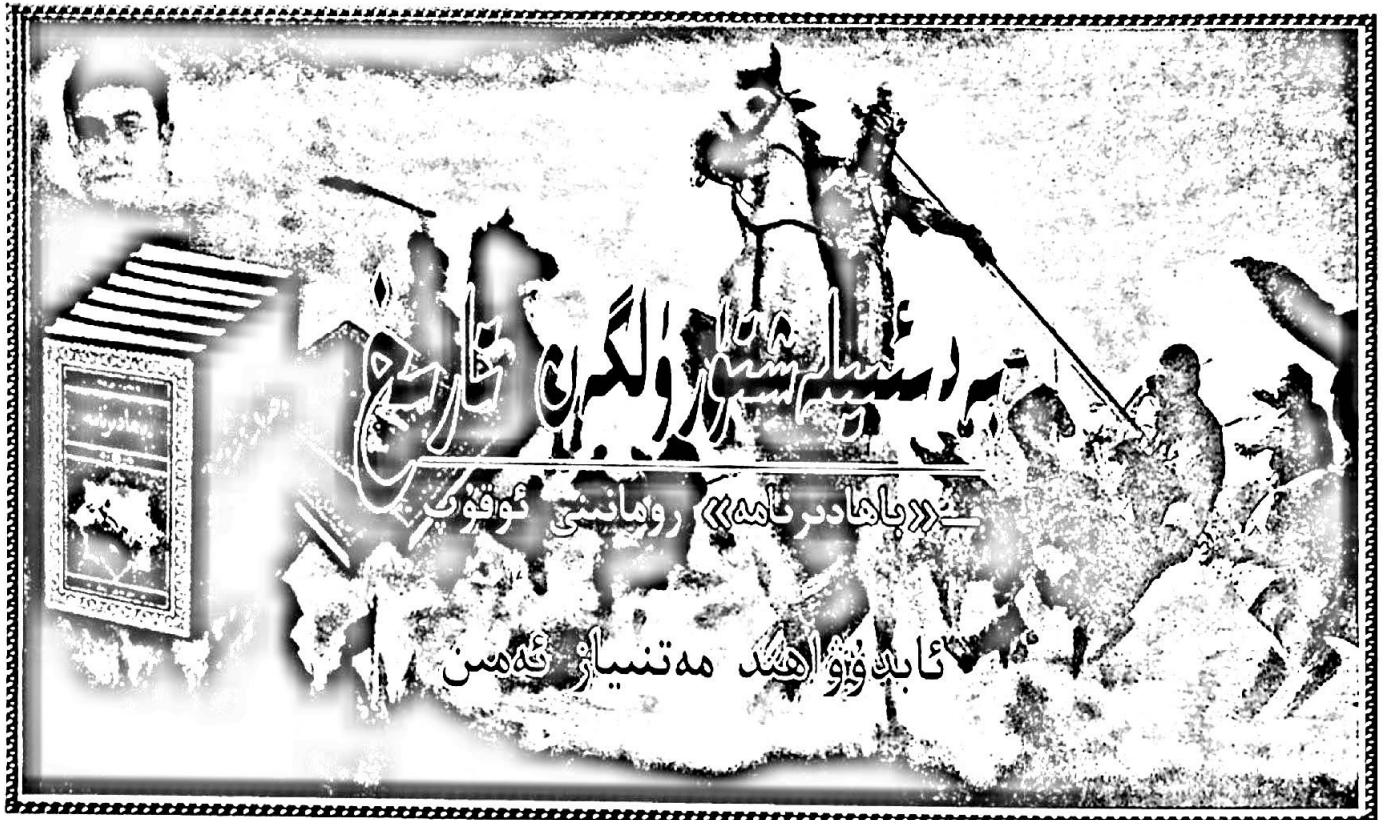 بەدىئىيلەشتۈرۈلگەن تارىخ
—«باھادىرنامە» رومانىنى ئوقۇپ
ئابدۇۋاھىد مەتنىياز ئەمىن
باھادىرنامە